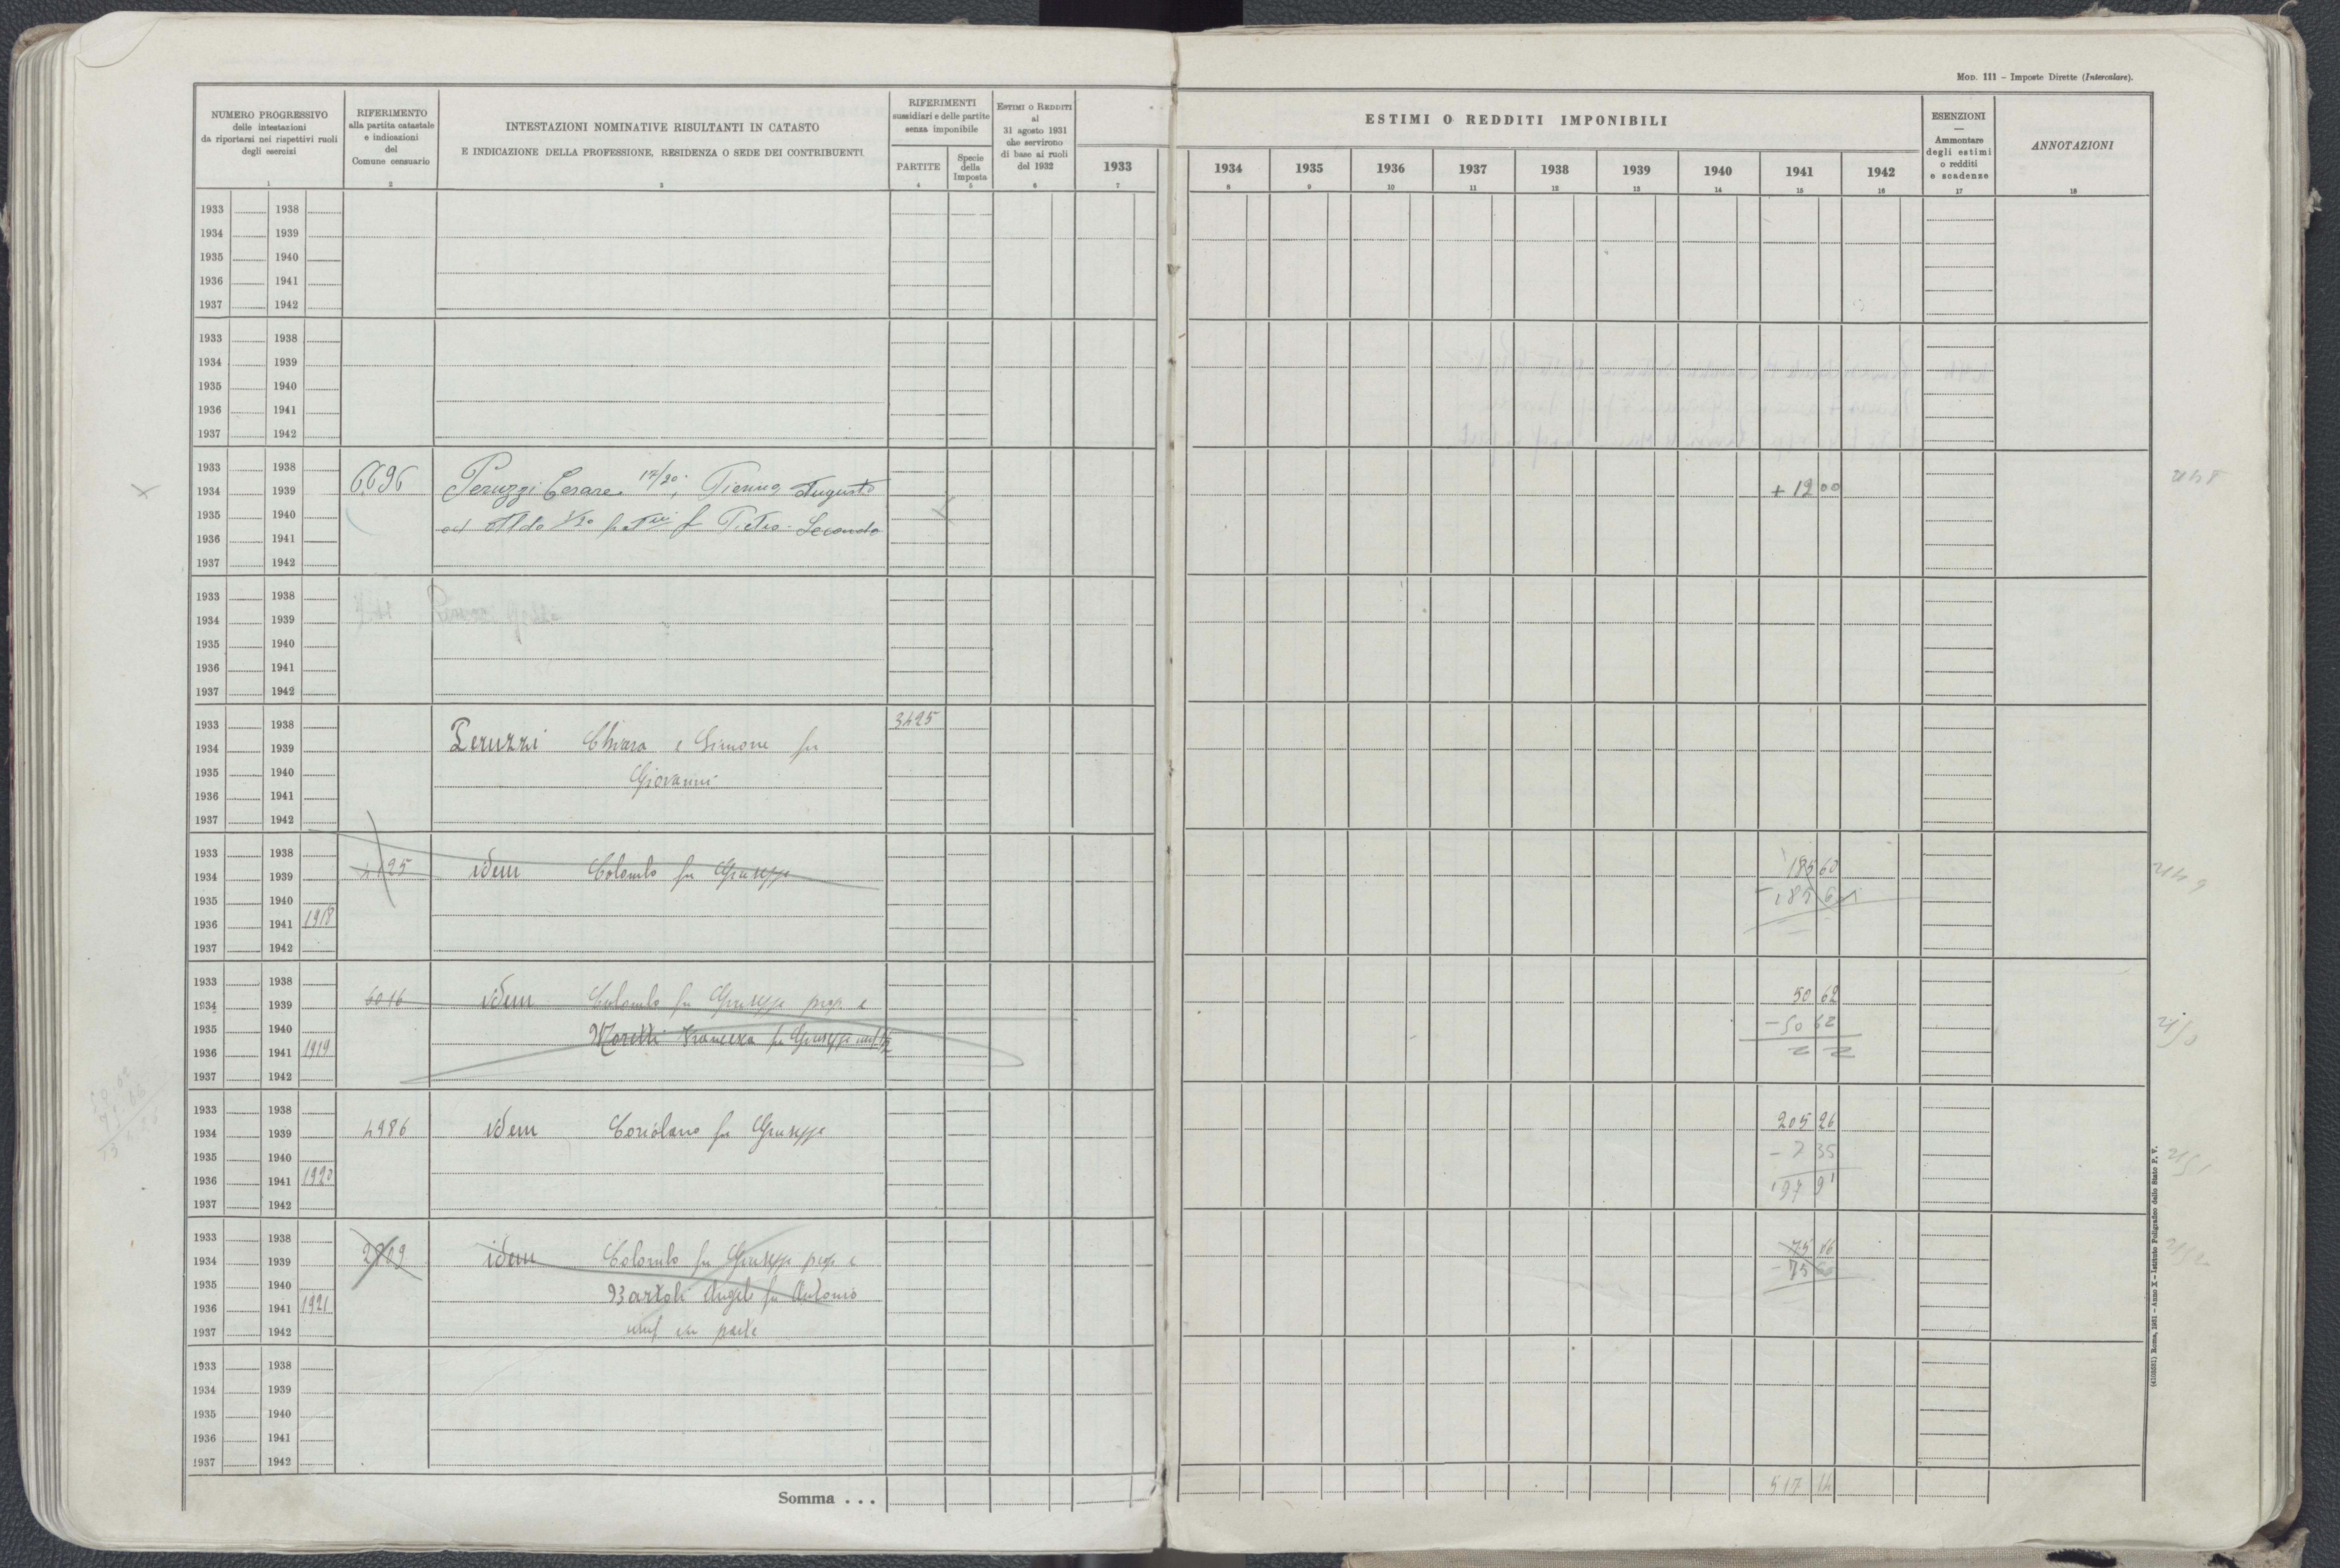 MOD. 111 – Imposte Dirette (Intercalare).
NUMERO PROGRESSIVO
delle intestazioni
da riportarsi nei rispettivi ruoli
degli esercizi
1
RIFERIMENTO
alla partita catastale
e indicazioni
del
Comune censuario
2
INTESTAZIONI NOMINATIVE RISULTANTI IN CATASTO
E INDICAZIONE DELLA PROFESSIONE, RESIDENZA O SEDE DEI CONTRIBUENTI
3
RIFERIMENTI
sussidiari e delle partite
senza imponibile
PARTITE
4
Specie
della
Imposta
5
ESTIMI O REDDITI
al
31 agosto 1931
che servirono
di base ai ruoli
del 1932
6
ESTIMI O REDDITI IMPONIBILI
1933 1934 1935 1936 1937 1938 1939 1940 1941 1942
7 8 9 10 11 12 13 14 15 16
ESENZIONI
—
Ammontare
degli estimi
o redditi
e scadenze
17
ANNOTAZIONI
18
1933 1938
1934 1939
1935 1940
1936 1941
1937 1942
1933 1938
1934 1939
1935 1940
1936 1941
1937 1942
1933 1938
1934 1939 6696 Peruzzi Cesare 17/20, Augusto + 12 00
1935 1940 ed Aldo 1/20 f Pietro Secondo
1936 1941
1937 1942
1933 1938
1934 1939
1935 1940
1936 1941
1937 1942
1933 1938 3425
1934 1939 Peruzzi Chiara e Simone fu
1935 1940 Giovanni
1936 1941
1937 1942
1933 1938
1934 1939 idem Colombo fu Giuseppe 185 60
1935 1940 – 185 60
1936 1941 1918
1937 1942
1933 1938
1934 1939 6016 idem Colombo fu Giuseppe prop. e 50 62
1935 1940 Moretti Francesca fu Giuseppe – 50 62
1936 1941 1919
1937 1942
1933 1938
1934 1939 4986 idem Coriolano fu Giuseppe 205 26
1935 1940 – 7 35
1936 1941 1920 197 91
1937 1942
1933 1938
1934 1939 idem Colombo fu Giuseppe prop. e 75 66
1935 1940 Bartoli Angelo fu Antonio – 75
1936 1941 1921
1937 1942 usuf in parte
1933 1938
1934 1939
1935 1940
1936 1941
1937 1942
Somma . . . 517 14
(4102681) Roma, 1931 – Anno X – Istituto Poligrafico dello Stato P. V.